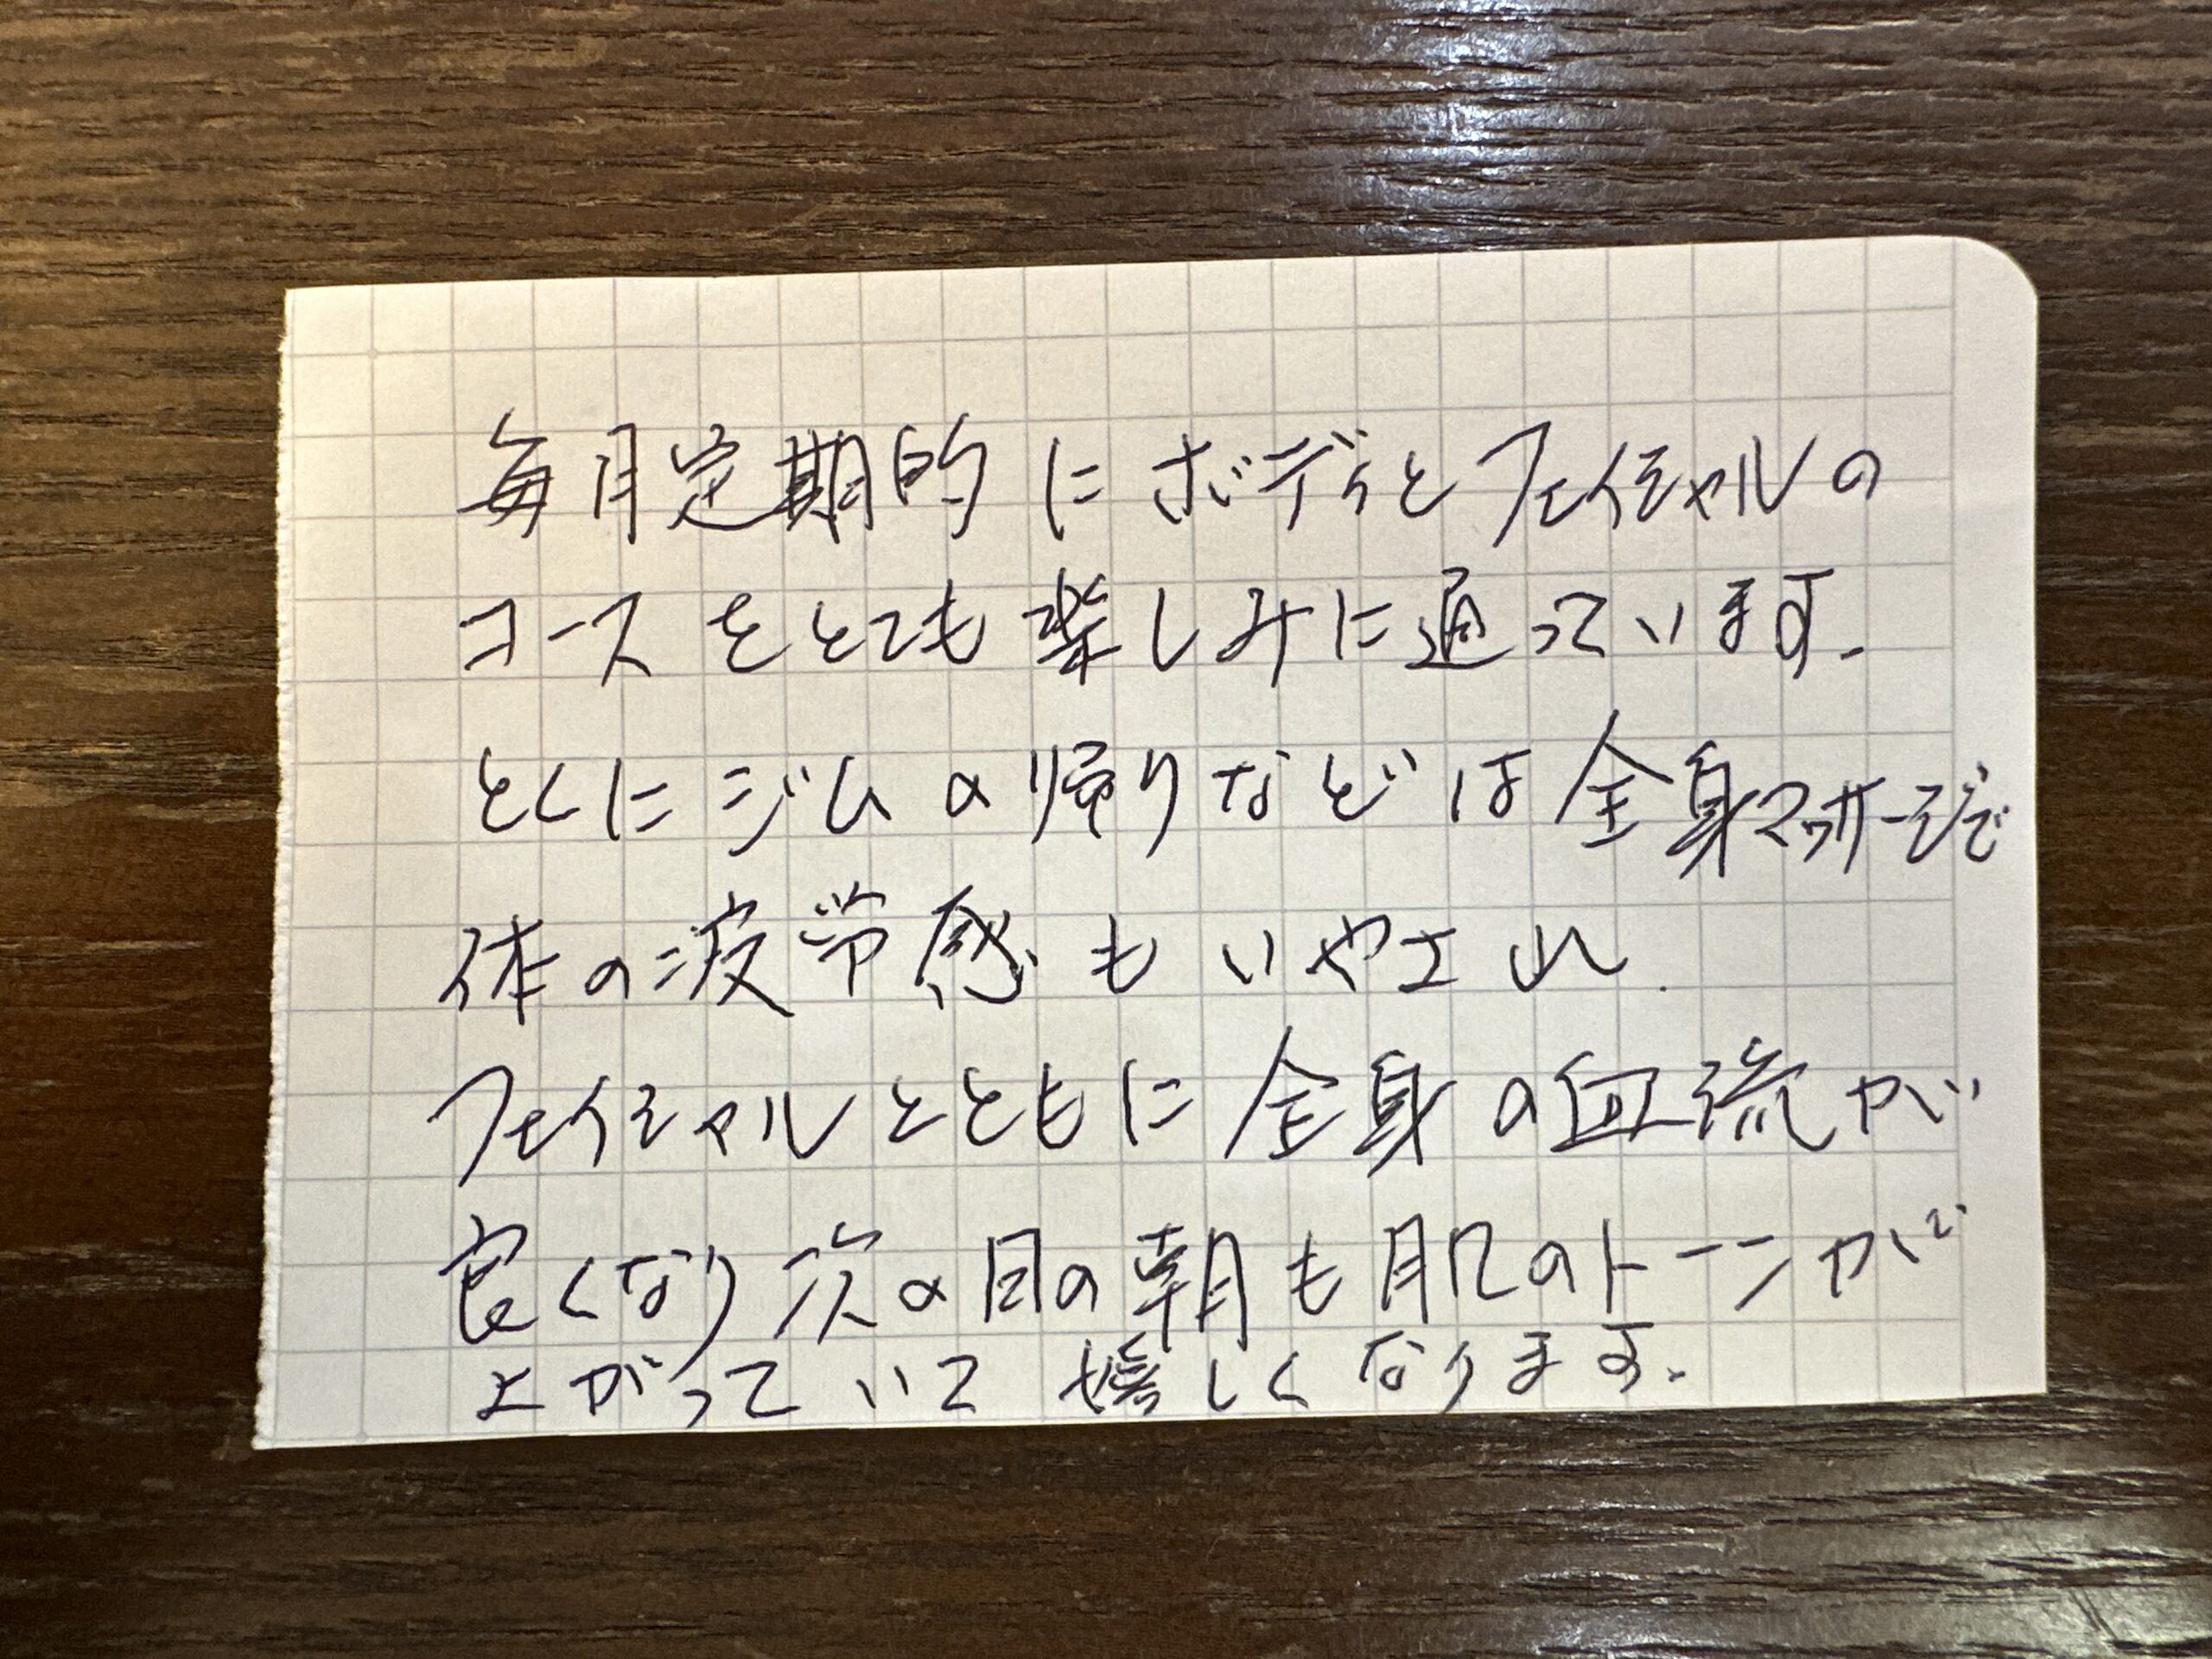 毎月定期的にボディとフェイシャルの
コースをとても楽しみに通っています。
とくにジムの帰りなどは全身マッサージで
体の疲労感もいやされ、
フェイシャルとともに全身の血流が
良くなり次の日の朝も肌のトーンが
上がっていて嬉しくなります。